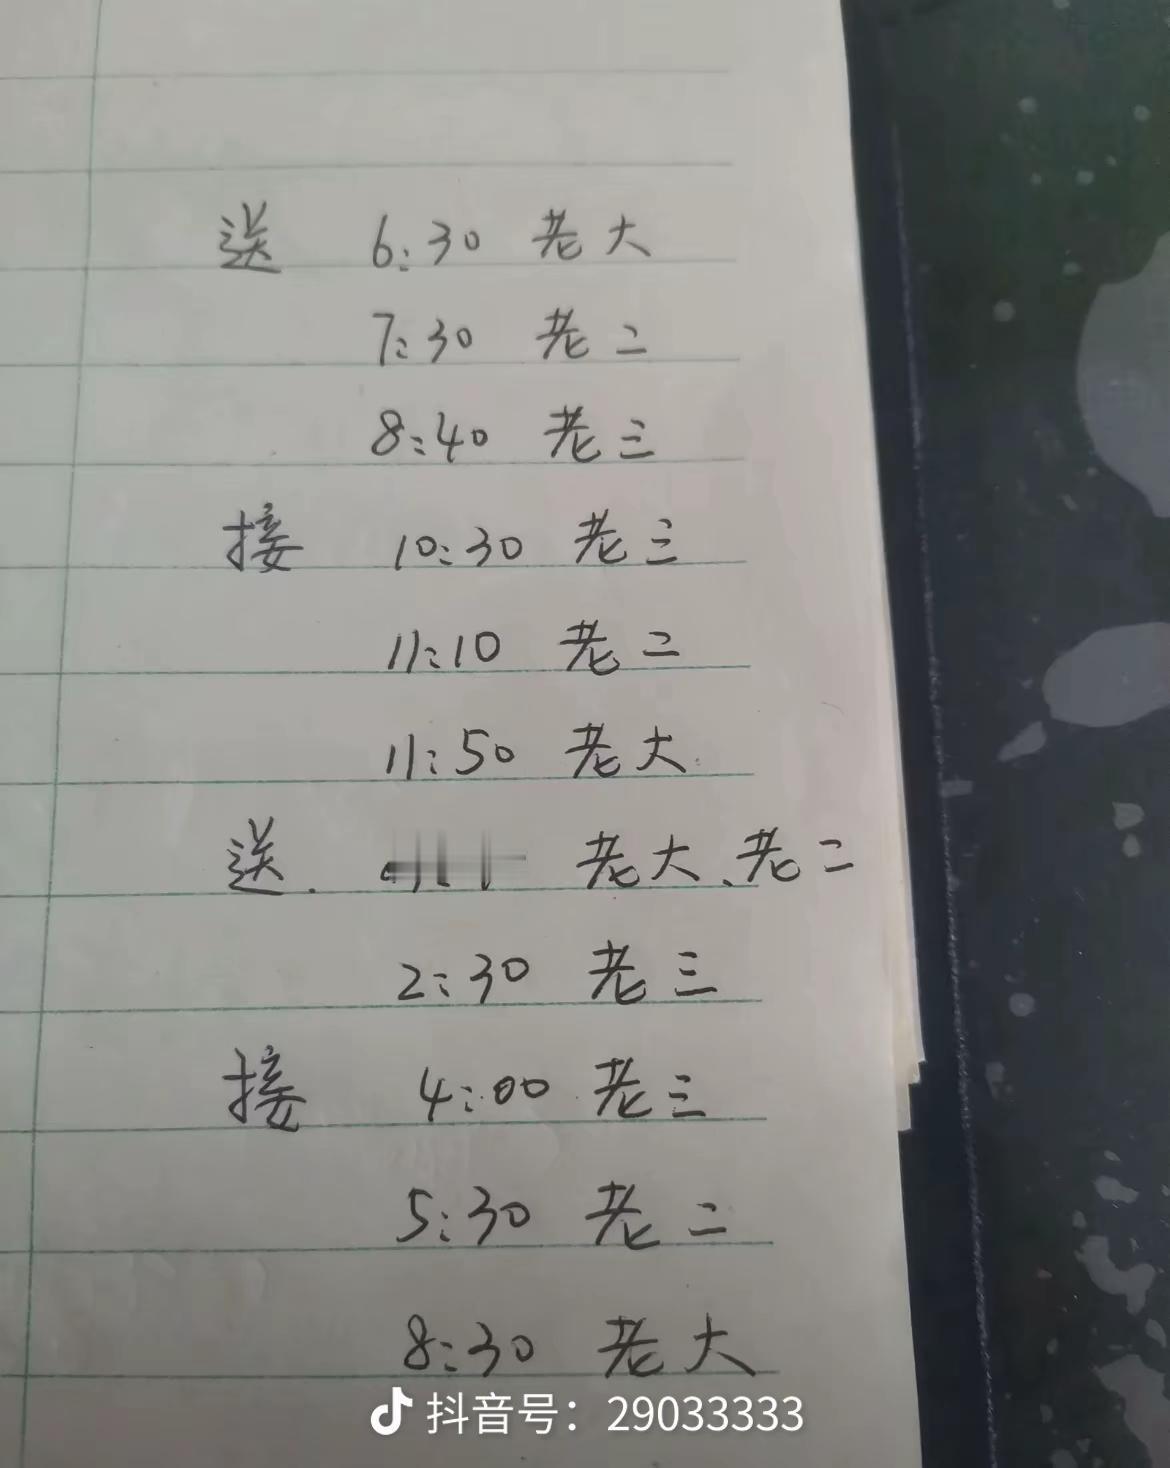 送 6:30 老大
7:30 老二
8:40 老三
接 10:30 老三
11:10 老二
11:50 老大
送. 老大、老二
2:30 老三
接 4:00 老三
5:30 老二
8:30 老大
抖音号：29033333